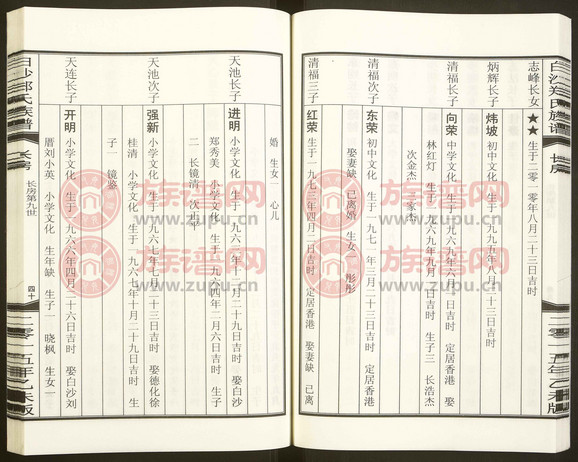 白沙郑氏族谱
长房
二零一五年乙未版
志峰长女
★★ 生于二零一零年八月二十三日吉时
炳辉长子
炜坡 初中文化 生于一九九五年八月一日吉时
清福长子
向荣 中学文化 生于一九六九年六月 日吉时 定居香港 娶
林红灯 生于一九六九年九月 日吉时 生子三 长浩杰
次金杰 家杰
清福次子
东荣 初中文化 生于一九七一年三月二十三日吉时 定居香港
娶妻缺 已离婚 生女一 彤彤
清福三子
红荣 生于一九七三年四月二十三日吉时 定居香港 娶妻缺 已离
婚 生女一 心儿
天池长子
进明 小学文化 生于一九六二年十二月十九日吉时 娶白沙
郑秀美 小学文化 生于一九六六年二月六日吉时 生子
二 长镜清 次
天池次子
强新 小学文化 生于一九六七年七月二十三日吉时 娶德化徐
桂清 小学文化 生于一九六七年十月二十九日吉时 生
子一 镜鉴
天连长子
开明 小学文化 生于一九六六年四月二十六日吉时 娶白沙刘
厝刘小英 小学文化 生年缺 生子一 晓枫 生女一
白沙郑氏族谱
长房
长房第九世
四十
二零一五年乙未版
族谱网
www.zupu.cn
族谱网
www.zupu.cn
族谱网
www.zupu.cn
族谱网
www.zupu.cn